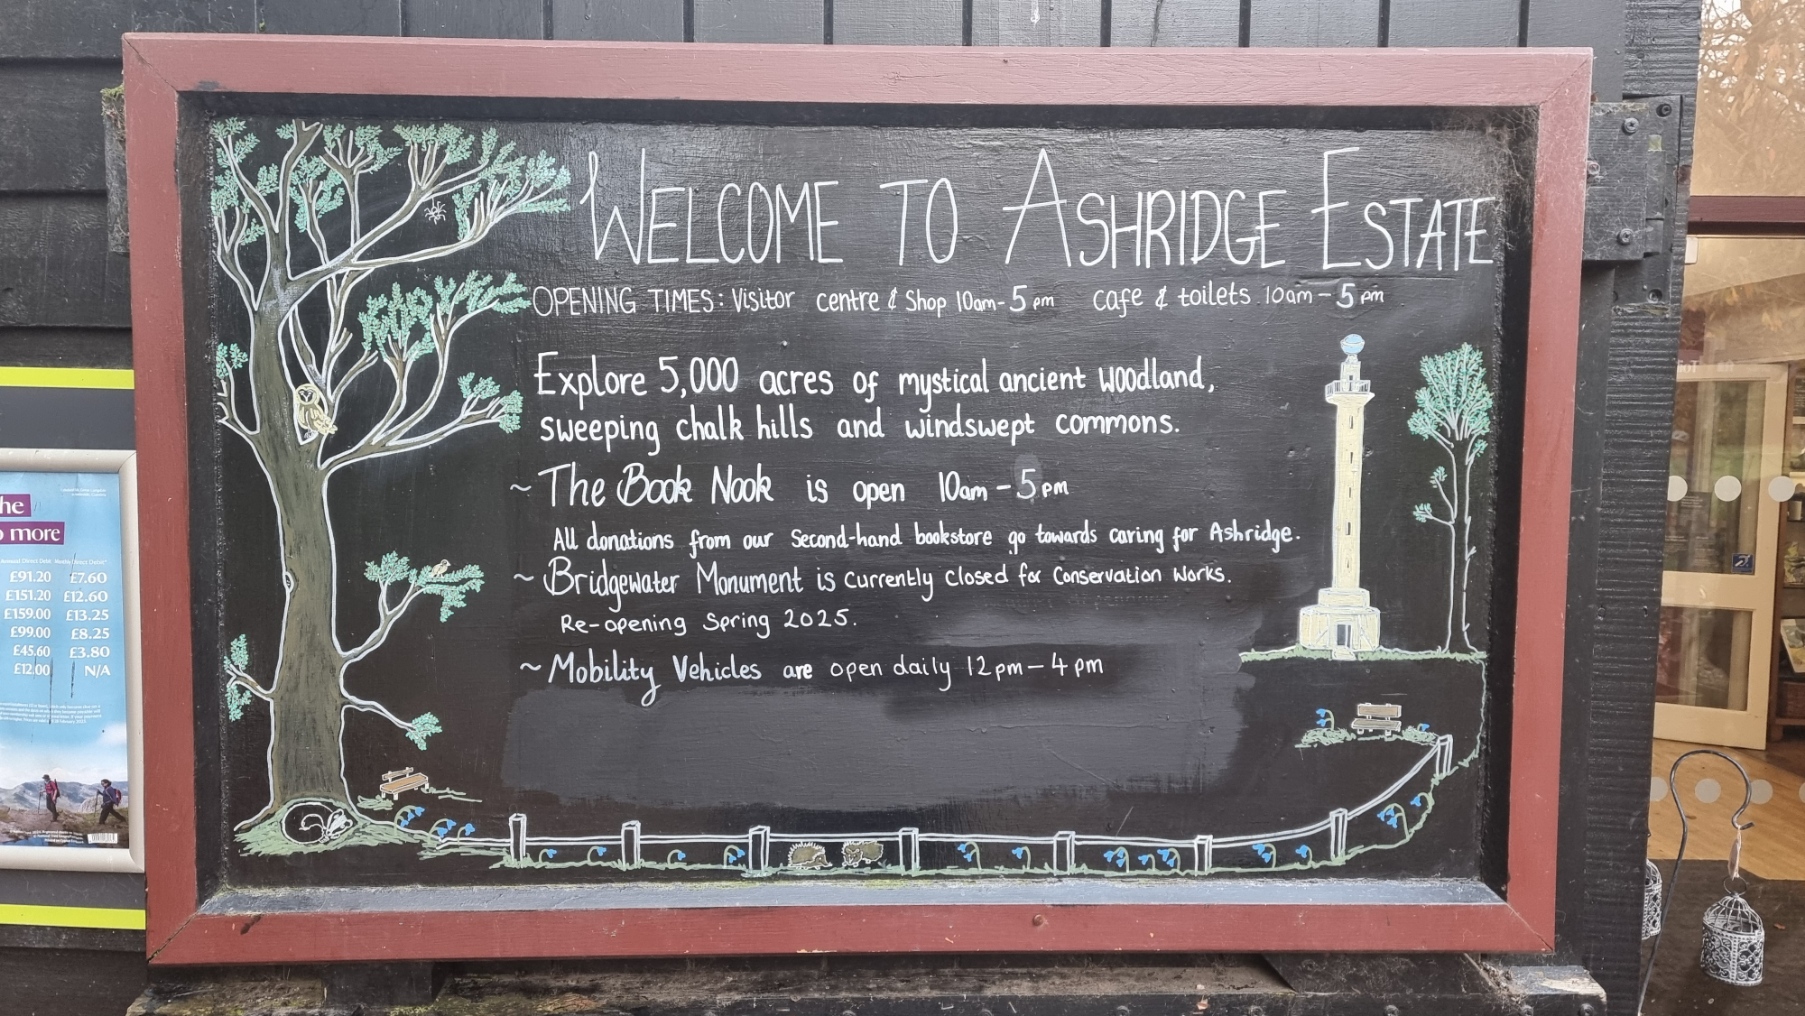 WELCOME TO ASHRIDGE ESTATE
OPENING TIMES: Visitor centre & Shop 10am-5pm cafe & toilets 10am-5pm
Explore 5,000 acres of mystical ancient woodland,
sweeping chalk hills and windswept commons.
~ The Book Nook is open 10am-5pm
All donations from our second-hand bookstore go towards caring for Ashridge.
~ Bridgewater Monument is currently closed for conservation works.
Re-opening Spring 2025.
~ Mobility Vehicles are open daily 12pm-4pm
he
more
£91.20 £7.60
£151.20 £12.60
£159.00 £13.25
£99.00 £8.25
£45.60 £3.80
£12.00 N/A